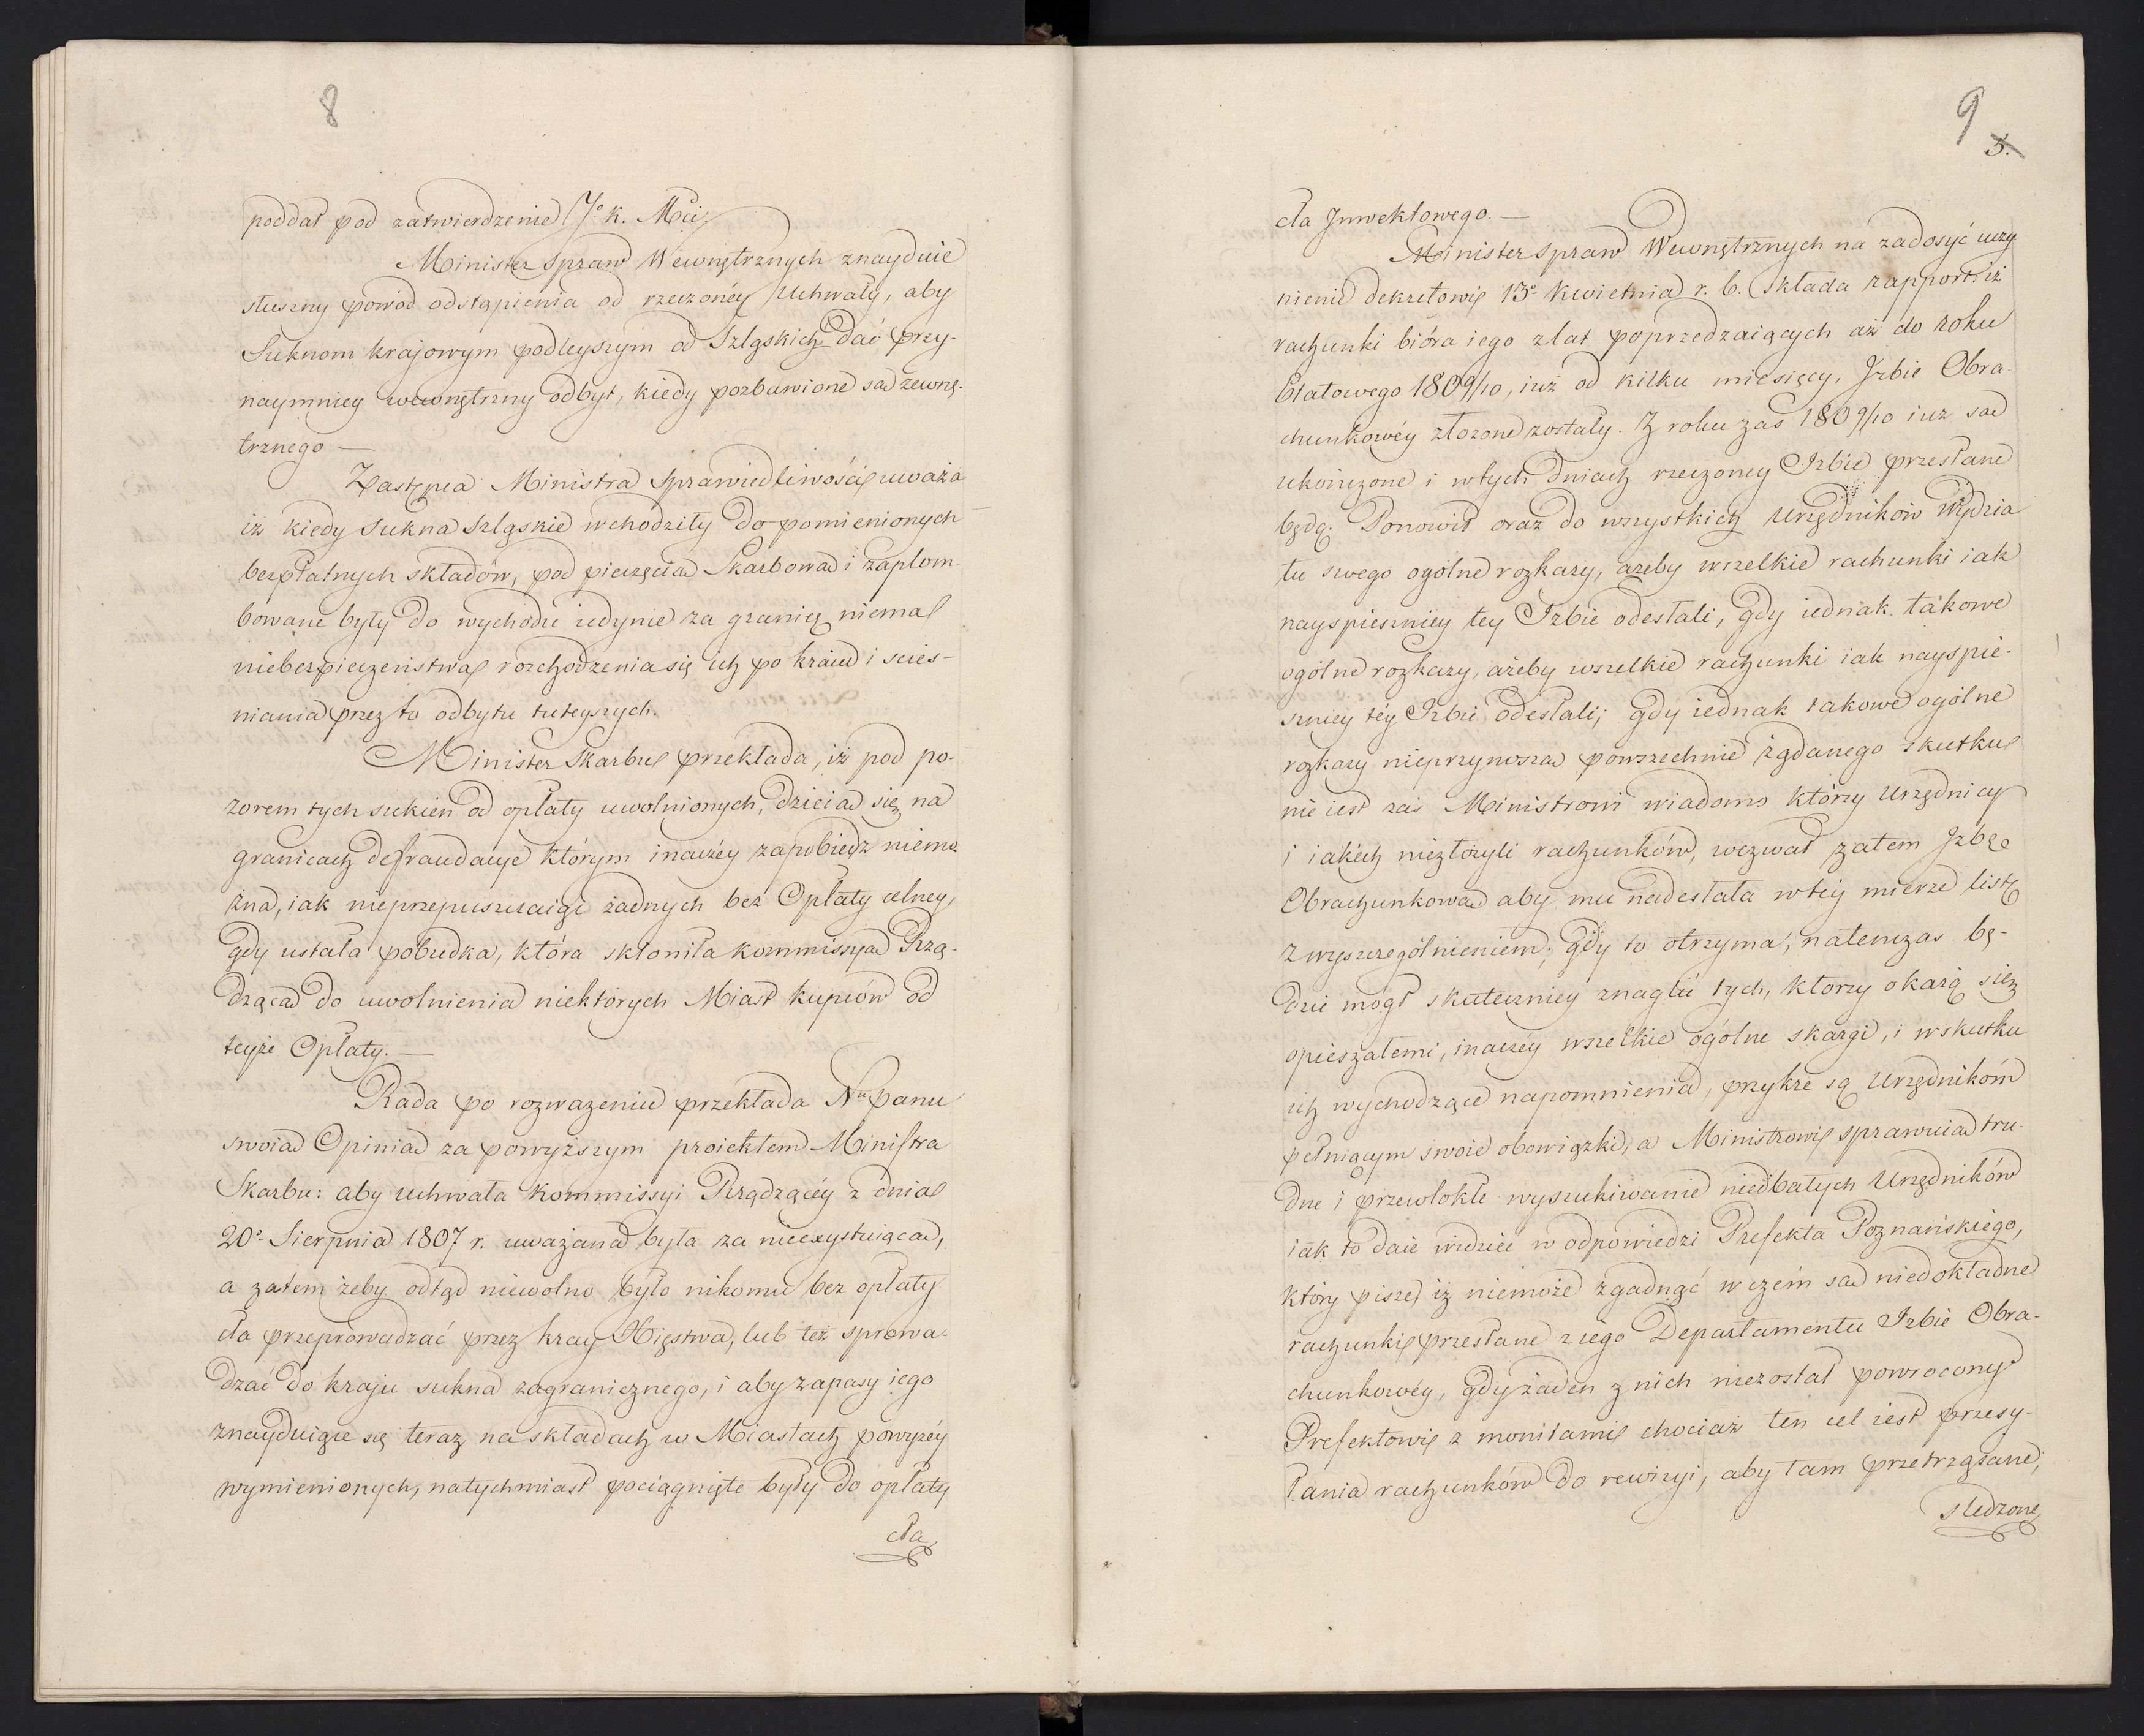 8
poddał pod zatwierdzenie Jo k. Mci
Minister Spraw Wewnętrznych znayduie
słuszny powód odstąpienia od rzeczonéy Uchwały, aby
Suknom krajowym podleyszym od Szląskich dać przy-
naymniey wewnętrzny odbyt, kiedy pozbawione są zewnę-
trznego —
Zastępca Ministra Sprawiedliwości uważa
iż kiedy Sukna Szląskie wchodziły do pomienionych
bezpłatnych składów, pod pieczęcią Skarbową i zaplom
bowane były do wychodu iedynie za granicę niema
niebezpieczeństwa rozchodzenia się ich po kraiu i scies-
niania przez to odbytu tuteyszych.
Minister Skarbu przekłada, iż pod po-
zorem tych sukien od opłaty uwolnionych, dzieią się na
granicach defraudacye którym inaczéy zapobiedz niemo
żna, iak nieprzepuszczaiąc żadnych bez Opłaty celney,
gdy ustała pobudka, która skłoniła kommissyą Rzą-
dzącą do uwolnienia niektórych Miast kupców od
teyże Opłaty. —
Rada po rozważeniu przekłada Nu Panu
swoią Opinią za powyższym proiektem Ministra
Skarbu: aby uchwała Kommissyi Rządzącéy z dnia
20o Sierpnia 1807 r. uważana była za nieexystuiącą,
a zatem żeby odtąd niewolno było nikomu bez opłaty
cła przeprowadzać przez kray Xięstwa, lub też sprowa-
dzać do kraju sukna zagranicznego, i aby zapasy iego
znayduiące się teraz na składach w Miastach powyżéy
wymienionych, natychmiast pociągnięte były do opłaty
cła
9
5.
cła Inwektowego. —
Minister Spraw Wewnętrznych na zadosyć uczy
nienie dekretowi 13o Kwietnia r. b. składa rapport: iż
rachunki bióra iego z lat poprzedzaiących aż do roku
Etatowego 1809/10, iuż od kilku miesięcy, Izbie Obra-
chunkowéy złożone zostały. Z roku zaś 1809/10 iuż są
ukończone i w tych dniach rzeczoney Izbie przesłane
będą. Ponowił oraz do wszystkich Urzędników Wydzia
łu swego ogólne rozkazy, ażeby wszelkie rachunki iak
nayspieszniey tey Izbie odesłali, gdy iednak takowe
ogólne rozkazy, ażeby wszelkie rachunki iak nayspie-
szniey téy Izbie odesłali; gdy iednak takowe ogólne
rozkazy nieprzynoszą powszechnie żądanego skutku
nie iest zaś Ministrowi wiadomo którzy Urzędnicy
i iakich niezłożyli rachunków, wezwał zatem Izbę
Obrachunkową aby mu nadesłała w téy mierze listę
z wyszczególnieniem; gdy to otrzyma, natenczas bę-
dzie mógł skuteczniey znaglić tych, którzy okażą się
opieszałemi, inaczéy wszelkie ogólne skargi, i w skutku
ich wychodzące napomnienia, przykre są Urzędnikóm
pełniącym swoie obowiązki, a Ministrowi sprawuią tru-
dne i przewlokłe wyszukiwanie niedbałych Urzędników
iak to daie widzieć w odpowiedzi Prefekta Poznańskiégo,
który pisze, iż niemoże zgadnąć w czém są niedokładne
rachunki przesłane z iego Departamentu Izbie Obra-
chunkowéy, gdy żaden z nich niezostał powrócony
Prefektowi z monitami chociaż ten cel iest przesy-
łania rachunków do rewizyi, aby tam przetrząsane,
śledzone